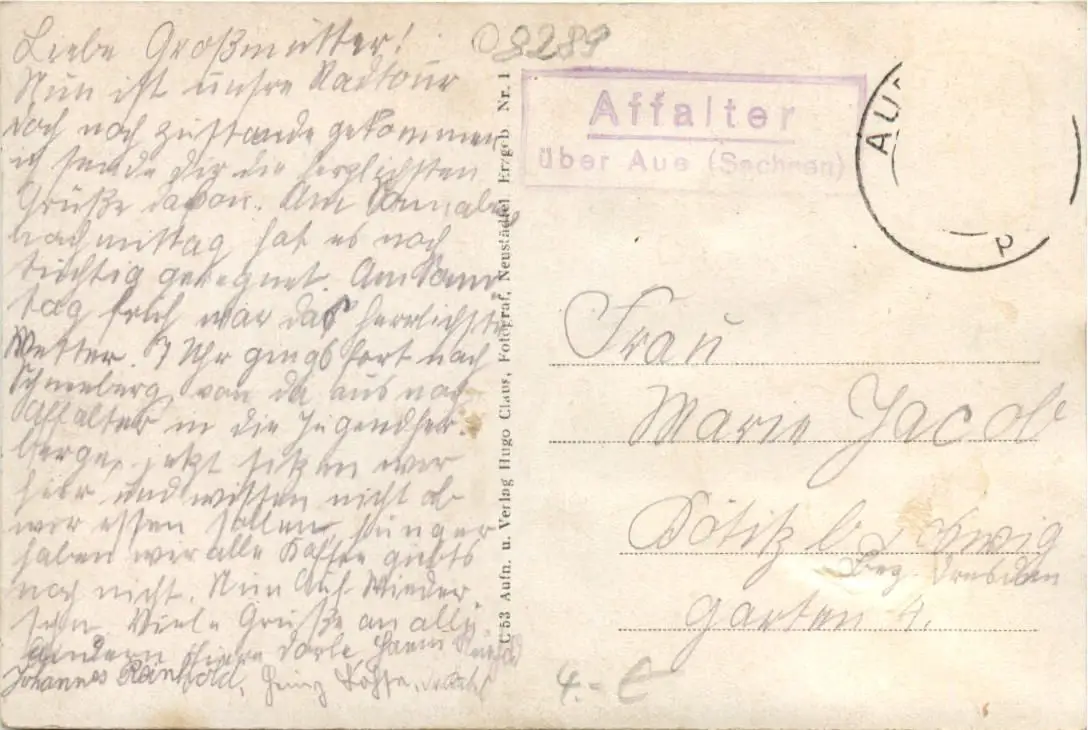 Liebe Großmutter!
Nun ist unsre Radtour
doch noch zustande gekommen
ich sende dir die herzlichsten
Grüße davon. Am Sonnabend
nachmittag hat es noch
tüchtig geregnet. Am Sonn
tag früh war das herrlichste
Wetter. 7 Uhr gings fort nach
Schneeberg von da aus nach
Affalter in die Jugendher-
berge, jetzt sitzen wir
hier und wissen nicht ob
wir essen sollen hunger
haben wir alle Kaffee gibts
noch nicht. Nun Auf Wieder-
sehn Viele Grüße an alle
andern
Johannes Reinhold, Heinz
C 53 Aufn. u. Verlag Hugo Claus, Fotograf, Neustädtel Erzgeb. Nr. 1
08289
Affalter
über Aue (Sachsen)
AUE
Frau
Marie Jacob
Kötitz b. Coswig
Bez. Dresden
Garten 4.
4.-